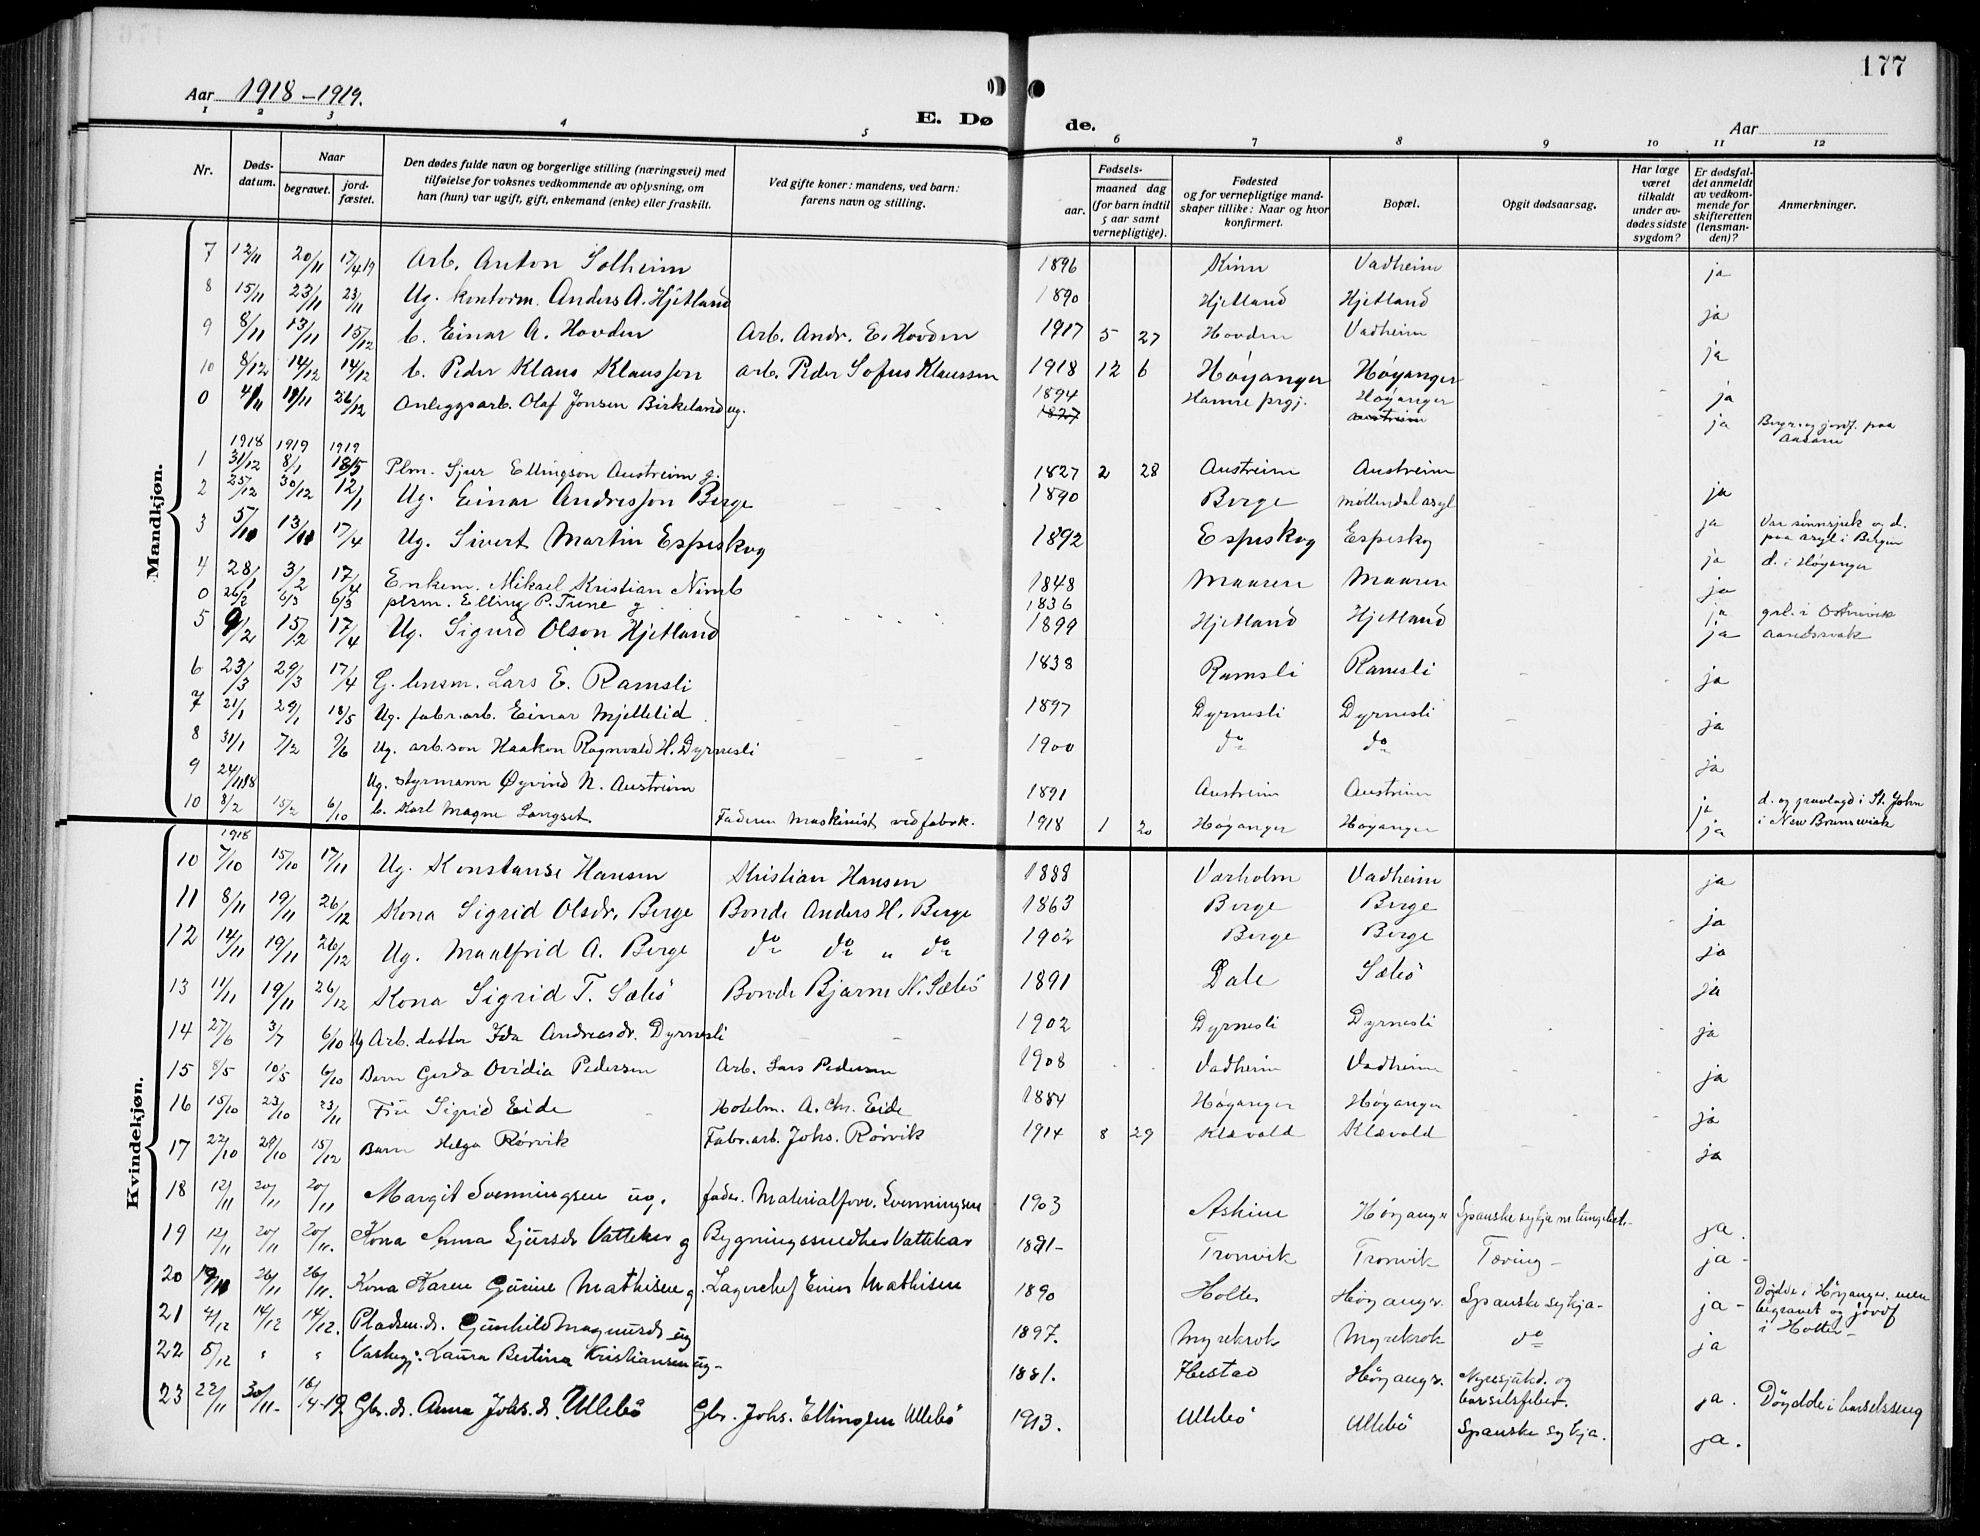 177
Aar 1918 – 1919.
E. Dø de.
Aar
1 2 3 4 5 6 7 8 9 10 11 12
Nr. Dødsdatum. Naar begravet. jordfæstet. Den dødes fulde navn og borgerlige stilling (næringsvei) med tilføielse for voksnes vedkommende av oplysning, om han (hun) var ugift, gift, enkemand (enke) eller fraskilt. Ved gifte koner: mandens, ved barn: farens navn og stilling. Fødsels- aar. maaned dag (for barn indtil 5 aar samt vernepligtige). Fødested og for vernepligtige mandskaper tillike: Naar og hvor konfirmert. Bopæl. Opgit dødsaarsag. Har læge været tilkaldt under avdødes sidste sygdom? Er dødsfaldet anmeldt av vedkommende for skifteretten (lensmanden)? Anmerkninger.
Mandkjøn.
7 12/11 20/11 17/4 19 Arb. Anton Solheim 1896 Kinn Vadheim ja
8 15/11 23/11 23/11 Ug. kontorm. Anders A. Hjetland 1890 Hjetland Hjetland ja
9 8/11 13/11 15/12 b. Einar A. Hovden Arb. Andr. E. Hovden 1917 5 27 Hovden Vadheim ja
10 8/12 14/12 14/12 b. Peder Klaus Klausson arb. Peder Sofus Klaussen 1918 12 6 Høyanger Høyanger ja
0 4/11 11/11 26/12 Anleggsarb. Olaf Jonsen Birkeland ug. 1894 1827 Hamre prgj. Høyanger Austreim ja Begr. og jordf. paa
1918 1919 1919
1 31/12 8/1 18/5 Plm. Sjur Ellingson Austreim g. 1827 2 28 Austreim Austreim ja
2 25/12 30/12 12/1 Ug. Einar Andresson Berge 1890 Berge Møllendal asyl ja Var sinnsjuk og d. paa asyl i Bergen
3 5/10 13/10 17/4 Ug. Sivert Martin Espeskog 1892 Espeskog Espeskog ja d. i Høyanger
4 28/1 3/2 17/4 Enkem. Mikael Kristian Nimb 1848 Maaren Maaren ja
0 26/2 6/3 6/3 plsm. Elling P. Trene g 1836 ja grl. i Ortnevik
5 9/2 15/2 17/4 Ug. Sigurd Olson Hjetland 1899 Hjetland Hjetland ja aandssvak
6 23/3 29/3 17/4 G. lensm. Lars E. Ramsli 1838 Ramsli Ramsli ja
7 21/1 29/1 18/5 Ug. fabr.arb. Einar Mjellelid 1897 Dyrnesli Dyrnesli ja
8 31/1 7/2 9/6 Ug. arb.son Haakon Ragnvald H. Dyrnesli 1900 do do ja
9 24/11 18 Ug. styrmann Øyvind N. Austreim 1891 Austreim Austreim ja d. og gravlagd i St. John i New Brunswick
10 8/2 15/2 6/10 b. Karl Magne Langset Faderen Maskinist ved fabrik. 1918 1 20 Høyanger Høyanger ja
Kvindekjøn.
1918
10 7/10 15/10 17/11 Ug. Konstanse Hansen Kristian Hansen 1888 Værholm Vadheim ja
11 8/11 19/11 26/12 Kona Sigrid Olsdr. Berge Bonde Anders H. Berge 1863 Berge Berge ja
12 14/11 19/11 26/12 Ug. Maalfrid A. Berge do do „ do 1902 Berge Berge ja
13 11/11 19/11 26/12 Kona Sigrid T. Sæbö Bonde Bjarne N. Sæbö 1891 Dale Sæbö ja
14 27/6 3/7 6/10 Ug Arb. datter Ida Andreasdr. Dyrnesli 1902 Dyrnesli Dyrnesli ja
15 8/5 10/5 6/10 Barn Gerda Ovidia Pedersen Arb. Lars Pedersen 1908 Vadheim Vadheim ja
16 15/10 23/10 23/11 Fru Sigrid Eide Hotelm. A. Chr. Eide 1884 Høyanger Høyanger ja
17 22/10 29/10 15/12 Barn Helga Rörvik Fabr.arb. Johs. Rörvik 1914 8 29 Klævold Klævold ja
18 12/11 20/11 20/11 Margit Svenningsen ug. fader. Materialforv. Svenningsen 1903 Askim Høyanger Spanske sykja ja.
19 12/11 20/11 20/11. Kona Anna Sjursdr Vattekar g Bygningssnedker Vattekar 1891 - Tronvik Tronvik Tæring - ja -
20 19/11 26/11 26/11. Kona Karen Gurine Mathisen g. Lagerchef Einar Mathisen 1890 Holter Høyanger. Spanske sykja - ja - Døydde i Høyanger, men begravet og jordf i Holter -
21 4/12 14/12 14/12. Pladsm.dr. Gunhild Magnusdr ug 1897. Myrekrok Myrekrok do ja
22 5/12 „ „ Vaskepj: Laura Bertina Kristiansen ug - 1881. Hestad Høyanger. Nyresjukd. og barselsfeber. ja. Döydde i barselsseng
23 22/11 30/11 - 16/4 - 19 Gbr.dr. Anna Johs.dr. Ullebö Gbr. Johs. Ellingsen Ullebö 1913. Ullebö Ullebö Spanske sykja. ja.